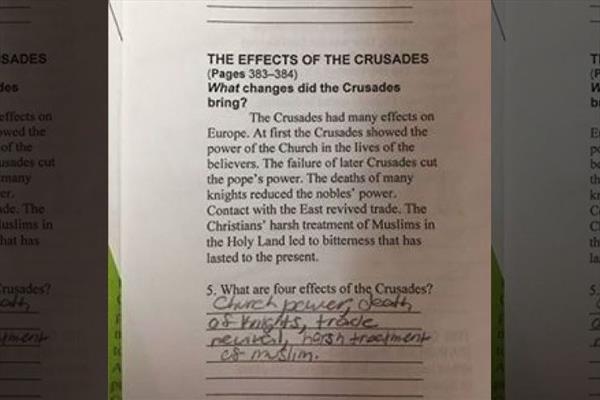 THE EFFECTS OF THE CRUSADES
(Pages 383–384)
What changes did the Crusades
bring?
The Crusades had many effects on
Europe. At first the Crusades showed the
power of the Church in the lives of the
believers. The failure of later Crusades cut
the pope's power. The deaths of many
knights reduced the nobles' power.
Contact with the East revived trade. The
Christians' harsh treatment of Muslims in
the Holy Land led to bitterness that has
lasted to the present.
5. What are four effects of the Crusades?
Church power, death
of knights, trade
revival, harsh treatment
of muslim.